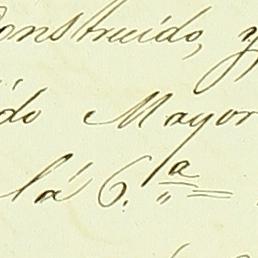 Construído, y
do Mayor
la 6.a